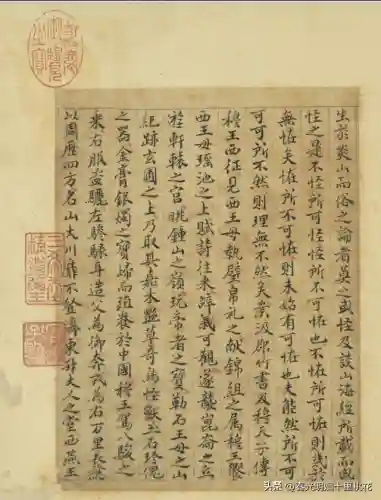 生於炎山而俗之論者莫之或怪及談山海經所載而咸
怪之是不怪所可怪怪所不可怪也不怪所可怪則幾於
無怪矣怪所不可怪則未始有可怪也夫能然所不
可可所不然則理無不然矣案汲郡竹書及穆天子傳
穆王西征見西王母執璧帛礼之献錦組之属穆王饗
西王母瑤池之上賦詩往来辞義可觀遂襲崑崙之丘
遊軒轅之宮眺鍾山之嶺玩帝者之寶勒石王母之山
紀跡玄圃之上乃取其嘉木豔草奇鳥怪獸玉石珍瑰
之器金膏銀燭之寶歸而殖養於中國穆王駕八駿之
乘右服盗驪左驂騄耳造父為御奔戎為右萬里長鶩
以周歷四方名山大川靡不登濟東升大人之堂西燕王
三希堂精鑑璽
头条 @春光明媚十里桃花